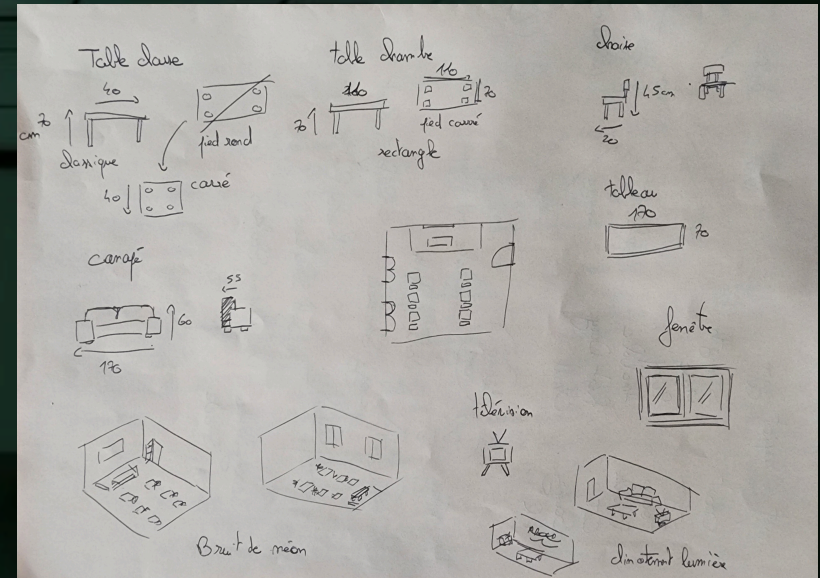 Table classe
40
70
cm
classique
pied rond
40
carré
table chambre
110
70
110
70
pied carré
rectangle
chaise
45cm
20
tableau
170
70
canapé
55
60
170
fenêtre
télévision
Bruit de néon
clinotement lumière